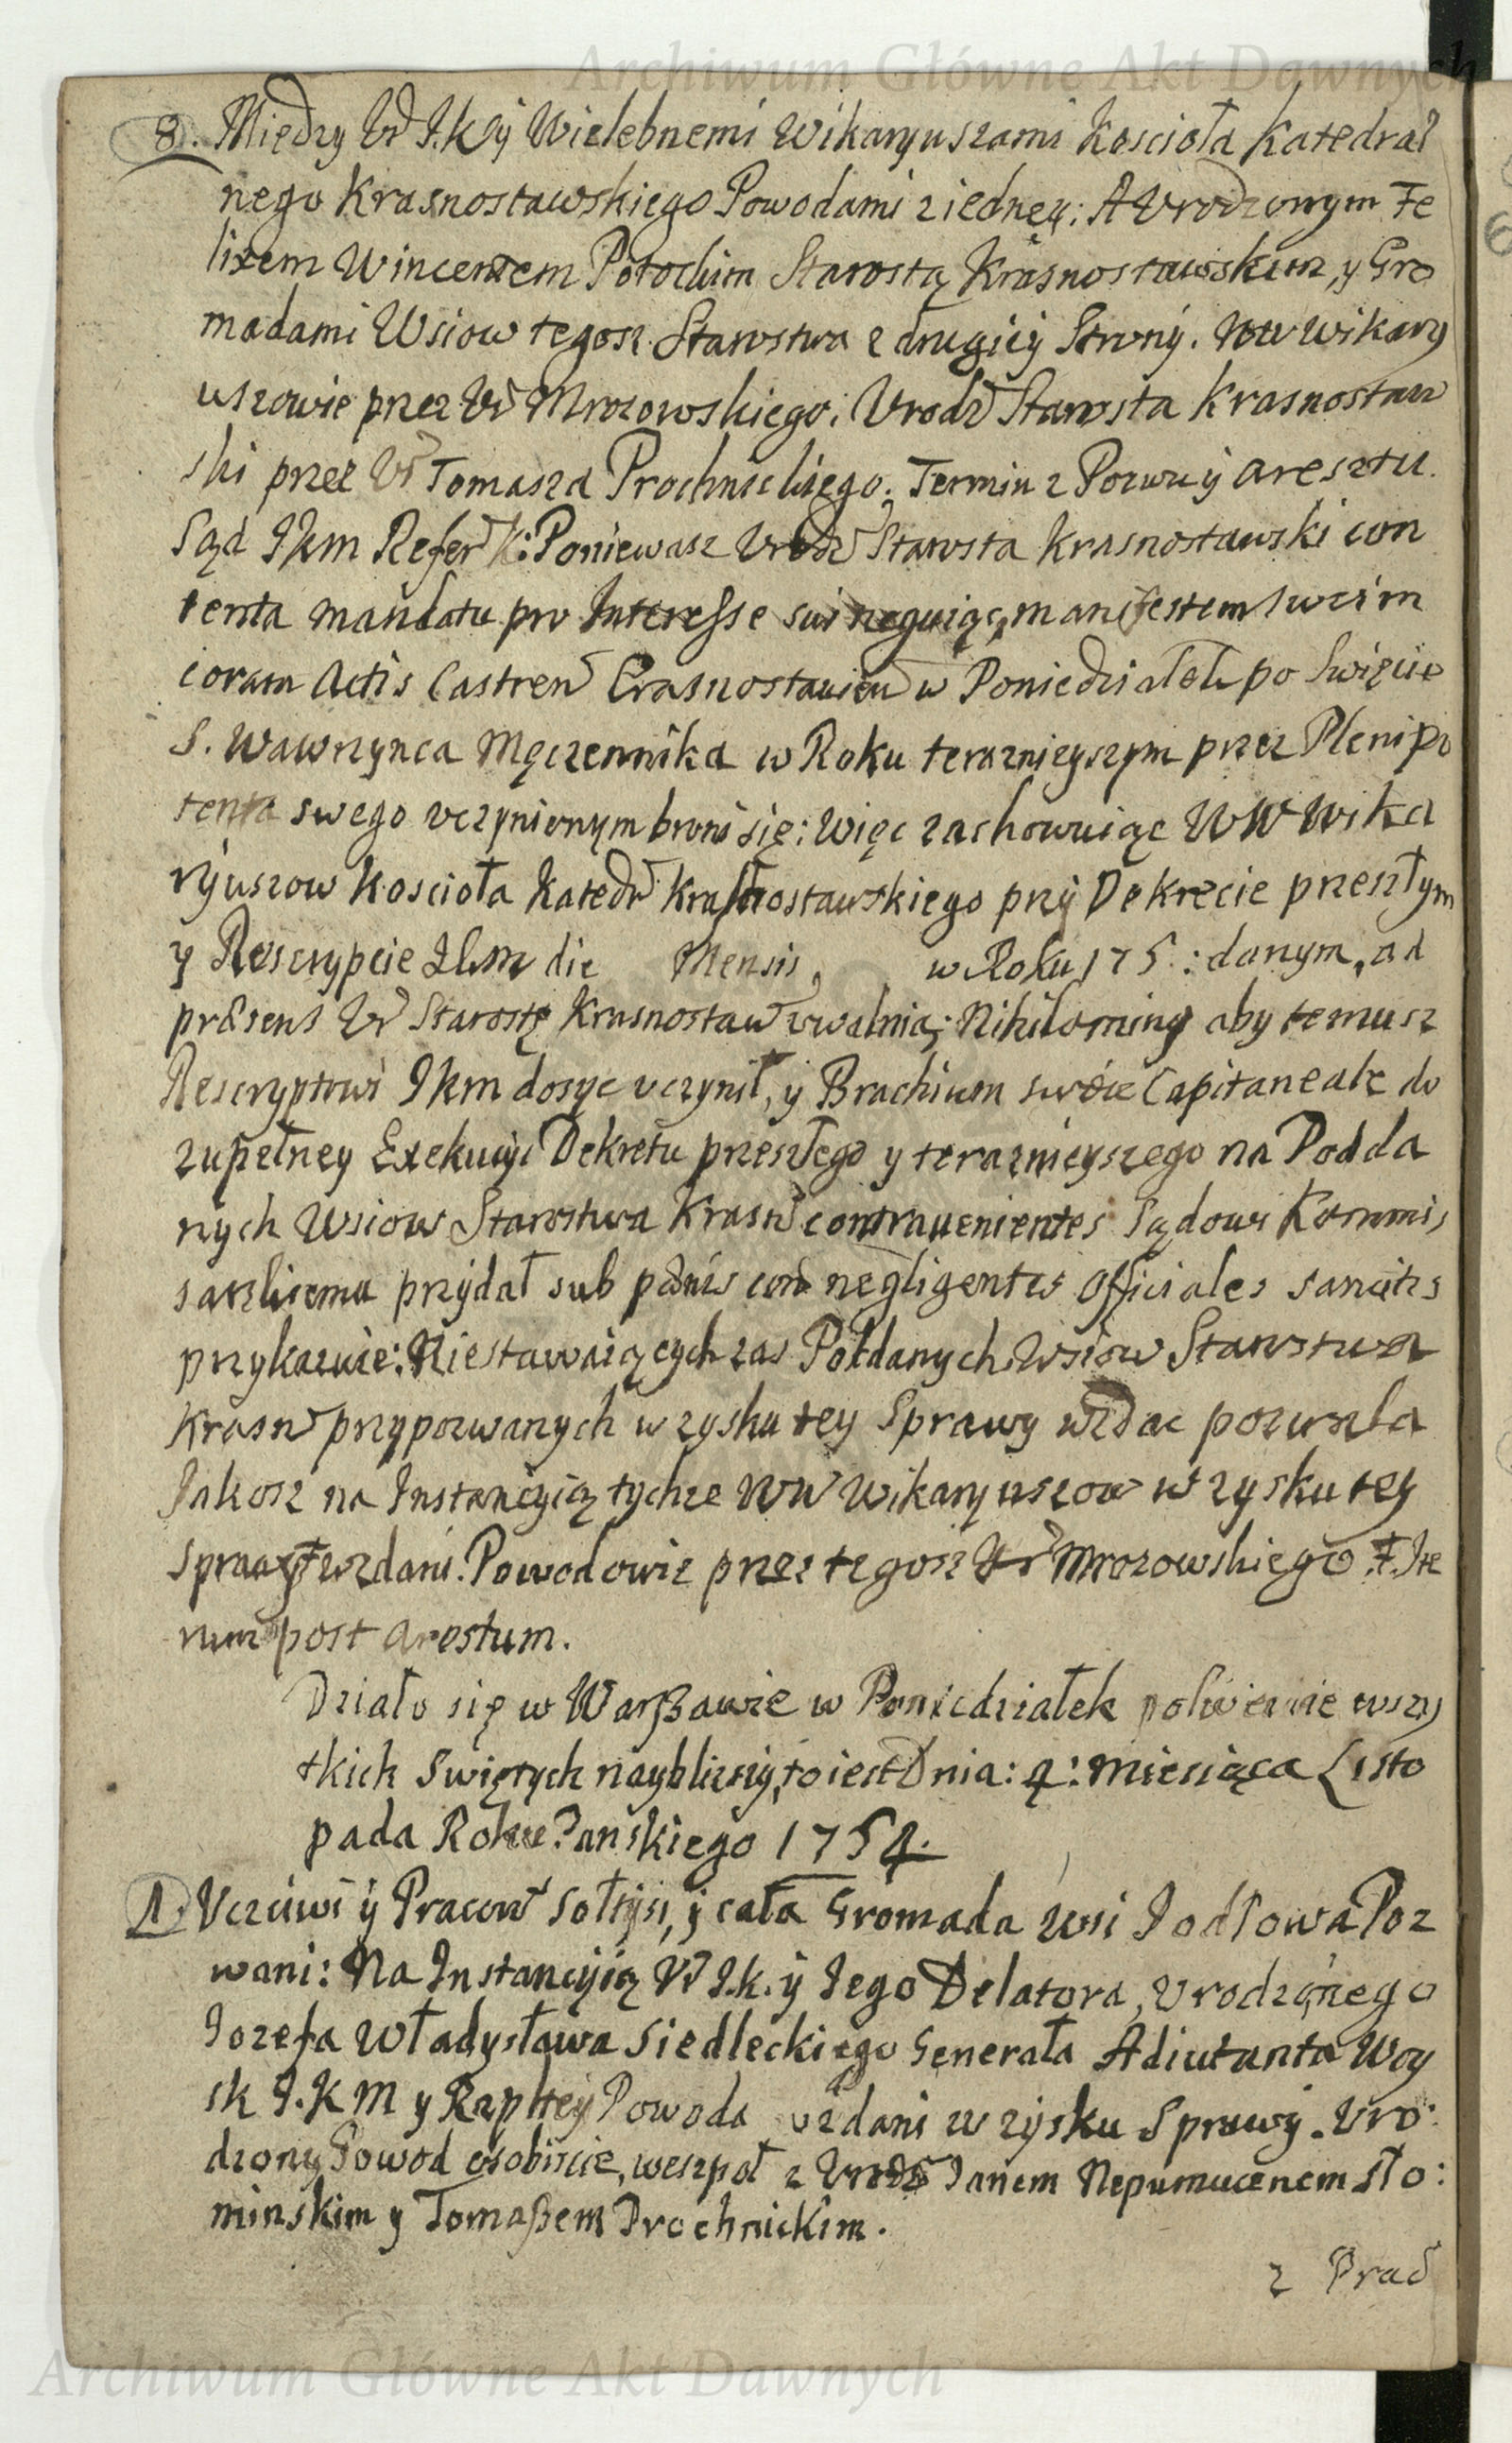 Archiwum Główne Akt Dawnych
8. Między Ur J.K y Wielebnemi Wikaryuszami Koscioła Katedral
nego Krasnostawskiego Powodami z iedney: A Urodzonym Fe
lixem Wincentem Potockim Starostą Krasnostawskim, y Gro
madami Wsiow tegosz Starostwa z drugiey Strony. WW Wikary
uszowie przez Ur Mrozowskiego; Urodz Starosta Krasnostaw
ski przez Ur Tomasza Prochnickiego. Termin z Pozwu y aresztu.
Sąd JKm Refer K: Poniewasz Urodz Starosta Krasnostawski con
tenta mandatu pro Interesse sui neguiąc, manifestem swoim
coram Actis Castren Crasnostavien w Poniedziałek po Swięcie
S. Wawrzynca Męczennika w Roku teraznieyszym przez Plenipo
tenta swego uczynionym broni się: Więc zachowuiąc WW Wika
ryuszow Koscioła Katedr Krasnostawskiego przy Dekrecie przeszłym
y Rescrypcie JKm die Mensis, w Roku 175 : danym, ad
præsens Ur Starostę Krasnostaw uwalnia; Nihilominus aby temusz
Rescryptowi JKm dosyc uczynił, y Brachium swoie Capitaneale do
zupełney Exekucyi Dekretu przeszłego y teraznieyszego na Podda
nych Wsiow Starostwa Krasn contravenientes Sądowi Kommis
sarskiemu przydał sub pænis con negligentes Officiales sancitis
przykazuie: Niestawaiących zas Poddanych Wsiow Starostwa
Krasn przypozwanych w zysku tey Sprawy wzdac pozwala
Jakosz na Instancyią tychze WW Wikaryuszow w zysku tey
Sprawy wzdani. Powodowie przez tegosz Ur Mrozowskiego. Ite
rum post Arestum.
Działo się w Warszawie w Poniedziałek po Swięcie wszy
tkich Swiętych naybliszy, to iest Dnia: 4: Miesiąca Listo
pada Roku Panskiego 1754.
1. Uczciwi y Pracow Sołtysi, y cała Gromada wsi Jodłowa Poz
wani: Na Instancyią Ur J.K. y Jego Delatora, Urodzonego
Jozefa Władysława Siedleckiego Generała Adiutanta Woy
sk J.K M y Rzpltey Powoda uzdani w zysku Sprawy. Uro:
dzony Powod osobiscie, weszpoł z Urodz Janem Nepumucenem Sło:
minskim y Tomaszem Prochnickim.
z Prad
Archiwum Główne Akt Dawnych